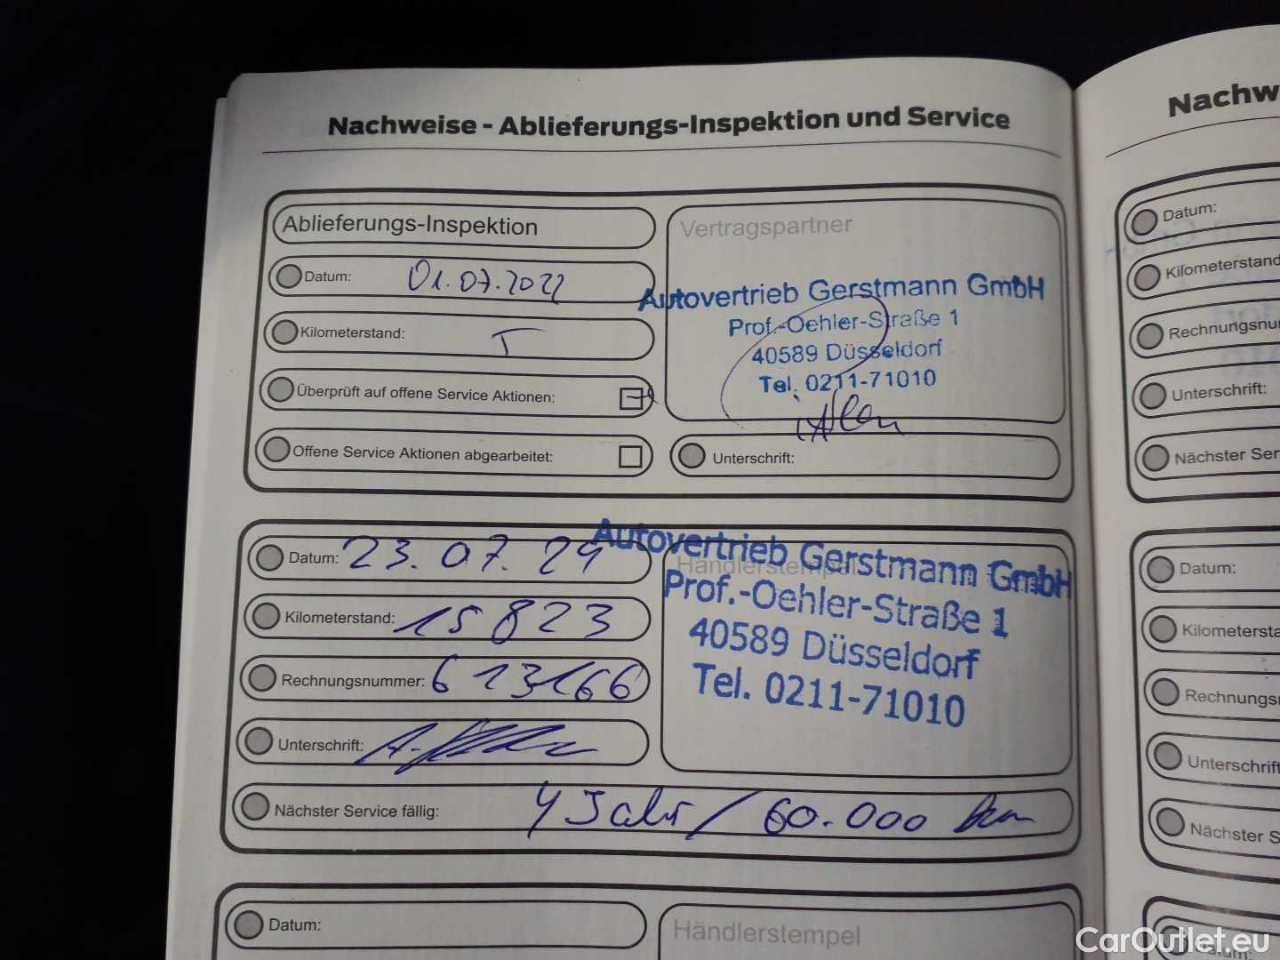 Nachweise - Ablieferungs-Inspektion und Service
Ablieferungs-Inspektion
Datum: 01.07.2022
Kilometerstand:
Überprüft auf offene Service Aktionen:
Offene Service Aktionen abgearbeitet:
Vertragspartner
Autovertrieb Gerstmann GmbH
Prof.-Oehler-Straße 1
40589 Düsseldorf
Tel. 0211-71010
Unterschrift:
Datum: 23.07.24
Kilometerstand: 15823
Rechnungsnummer: 613166
Unterschrift:
Händlerstempel
Autovertrieb Gerstmann GmbH
Prof.-Oehler-Straße 1
40589 Düsseldorf
Tel. 0211-71010
Nächster Service fällig: 4 Jahr / 60.000 km
Datum:
Händlerstempel
Nachw
Datum:
Kilometerstand
Rechnungsnu
Unterschrift:
Nächster Ser
Datum:
Kilometersta
Rechnungs
Unterschrift
Nächster S
Datum:
CarOutlet.eu